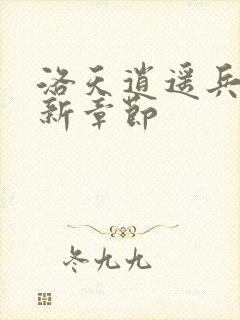 洛天逍遥兵
新章節
冬九九